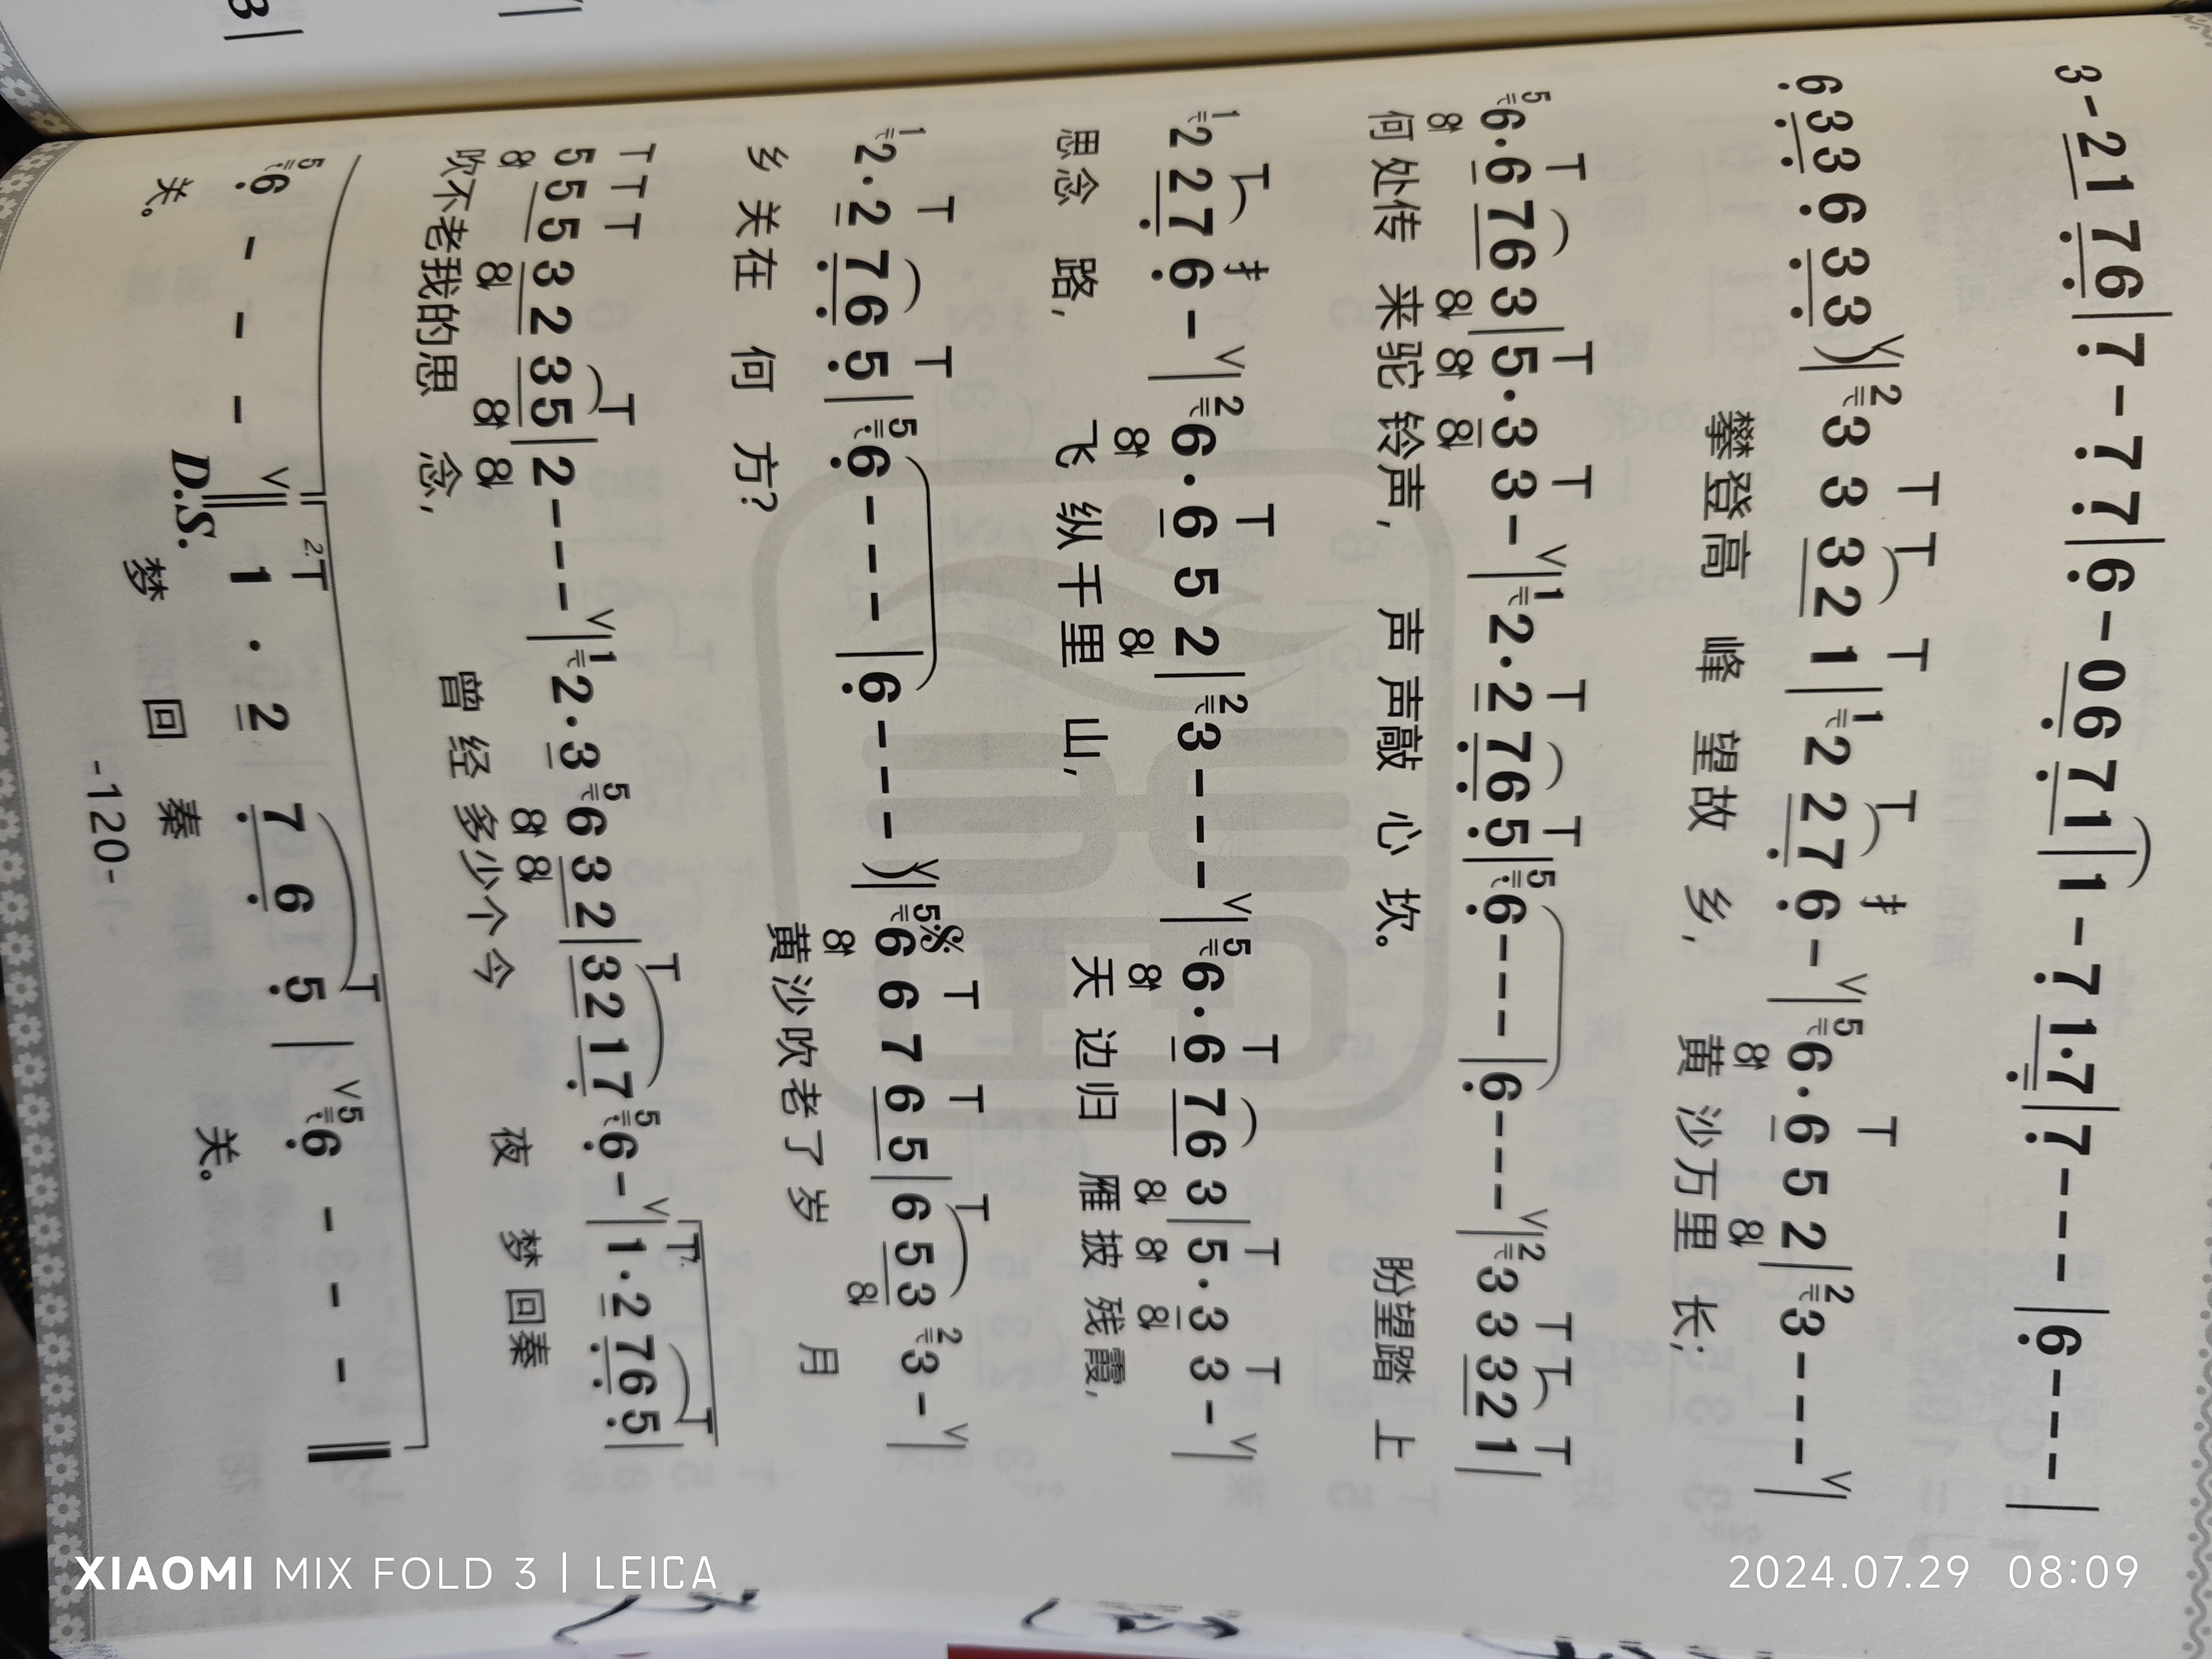 3 - 2 1 7 6 | 7 - 7 7 | 6 - 0 6 7 1 | 1 - 7 1·7 | 7 - - - | 6 - - - |
6 3 3 6 3 3 ) | 3 3 3 2 1 | 2 2 7 6 - | 6· 6 5 2 | 3 - - - |
攀登高 峰 望故 乡, 黄 沙万里 长;
6· 6 7 6 3 | 5· 3 3 - | 2· 2 7 6 5 | 6 - - - | 6 - - - | 3 3 3 2 1 |
何处传 来驼铃声, 声声敲 心 坎。 盼望踏 上
2 2 7 6 - | 6· 6 5 2 | 3 - - - | 6· 6 7 6 3 | 5· 3 3 - |
思念 路, 飞 纵千里 山, 天 边归 雁披残霞,
2· 2 7 6 5 | 6 - - - | 6 - - - ) | 6 6 7 6 5 | 6 5 3 3 - |
乡 关在 何 方? 黄沙吹老了岁 月
5 5 5 3 2 3 5 | 2 - - - | 2· 3 6 3 2 | 3 2 1 7 6 - | 1· 2 7 6 5 |
吹不老我的思 念, 曾 经多少个今 夜 梦回秦
6 - - - 1 · 2 7 6 5 | 6 - - -
关。 D.S. 梦 回 秦 关。
-120-
XIAOMI MIX FOLD 3 | LEICA
2024.07.29 08:09